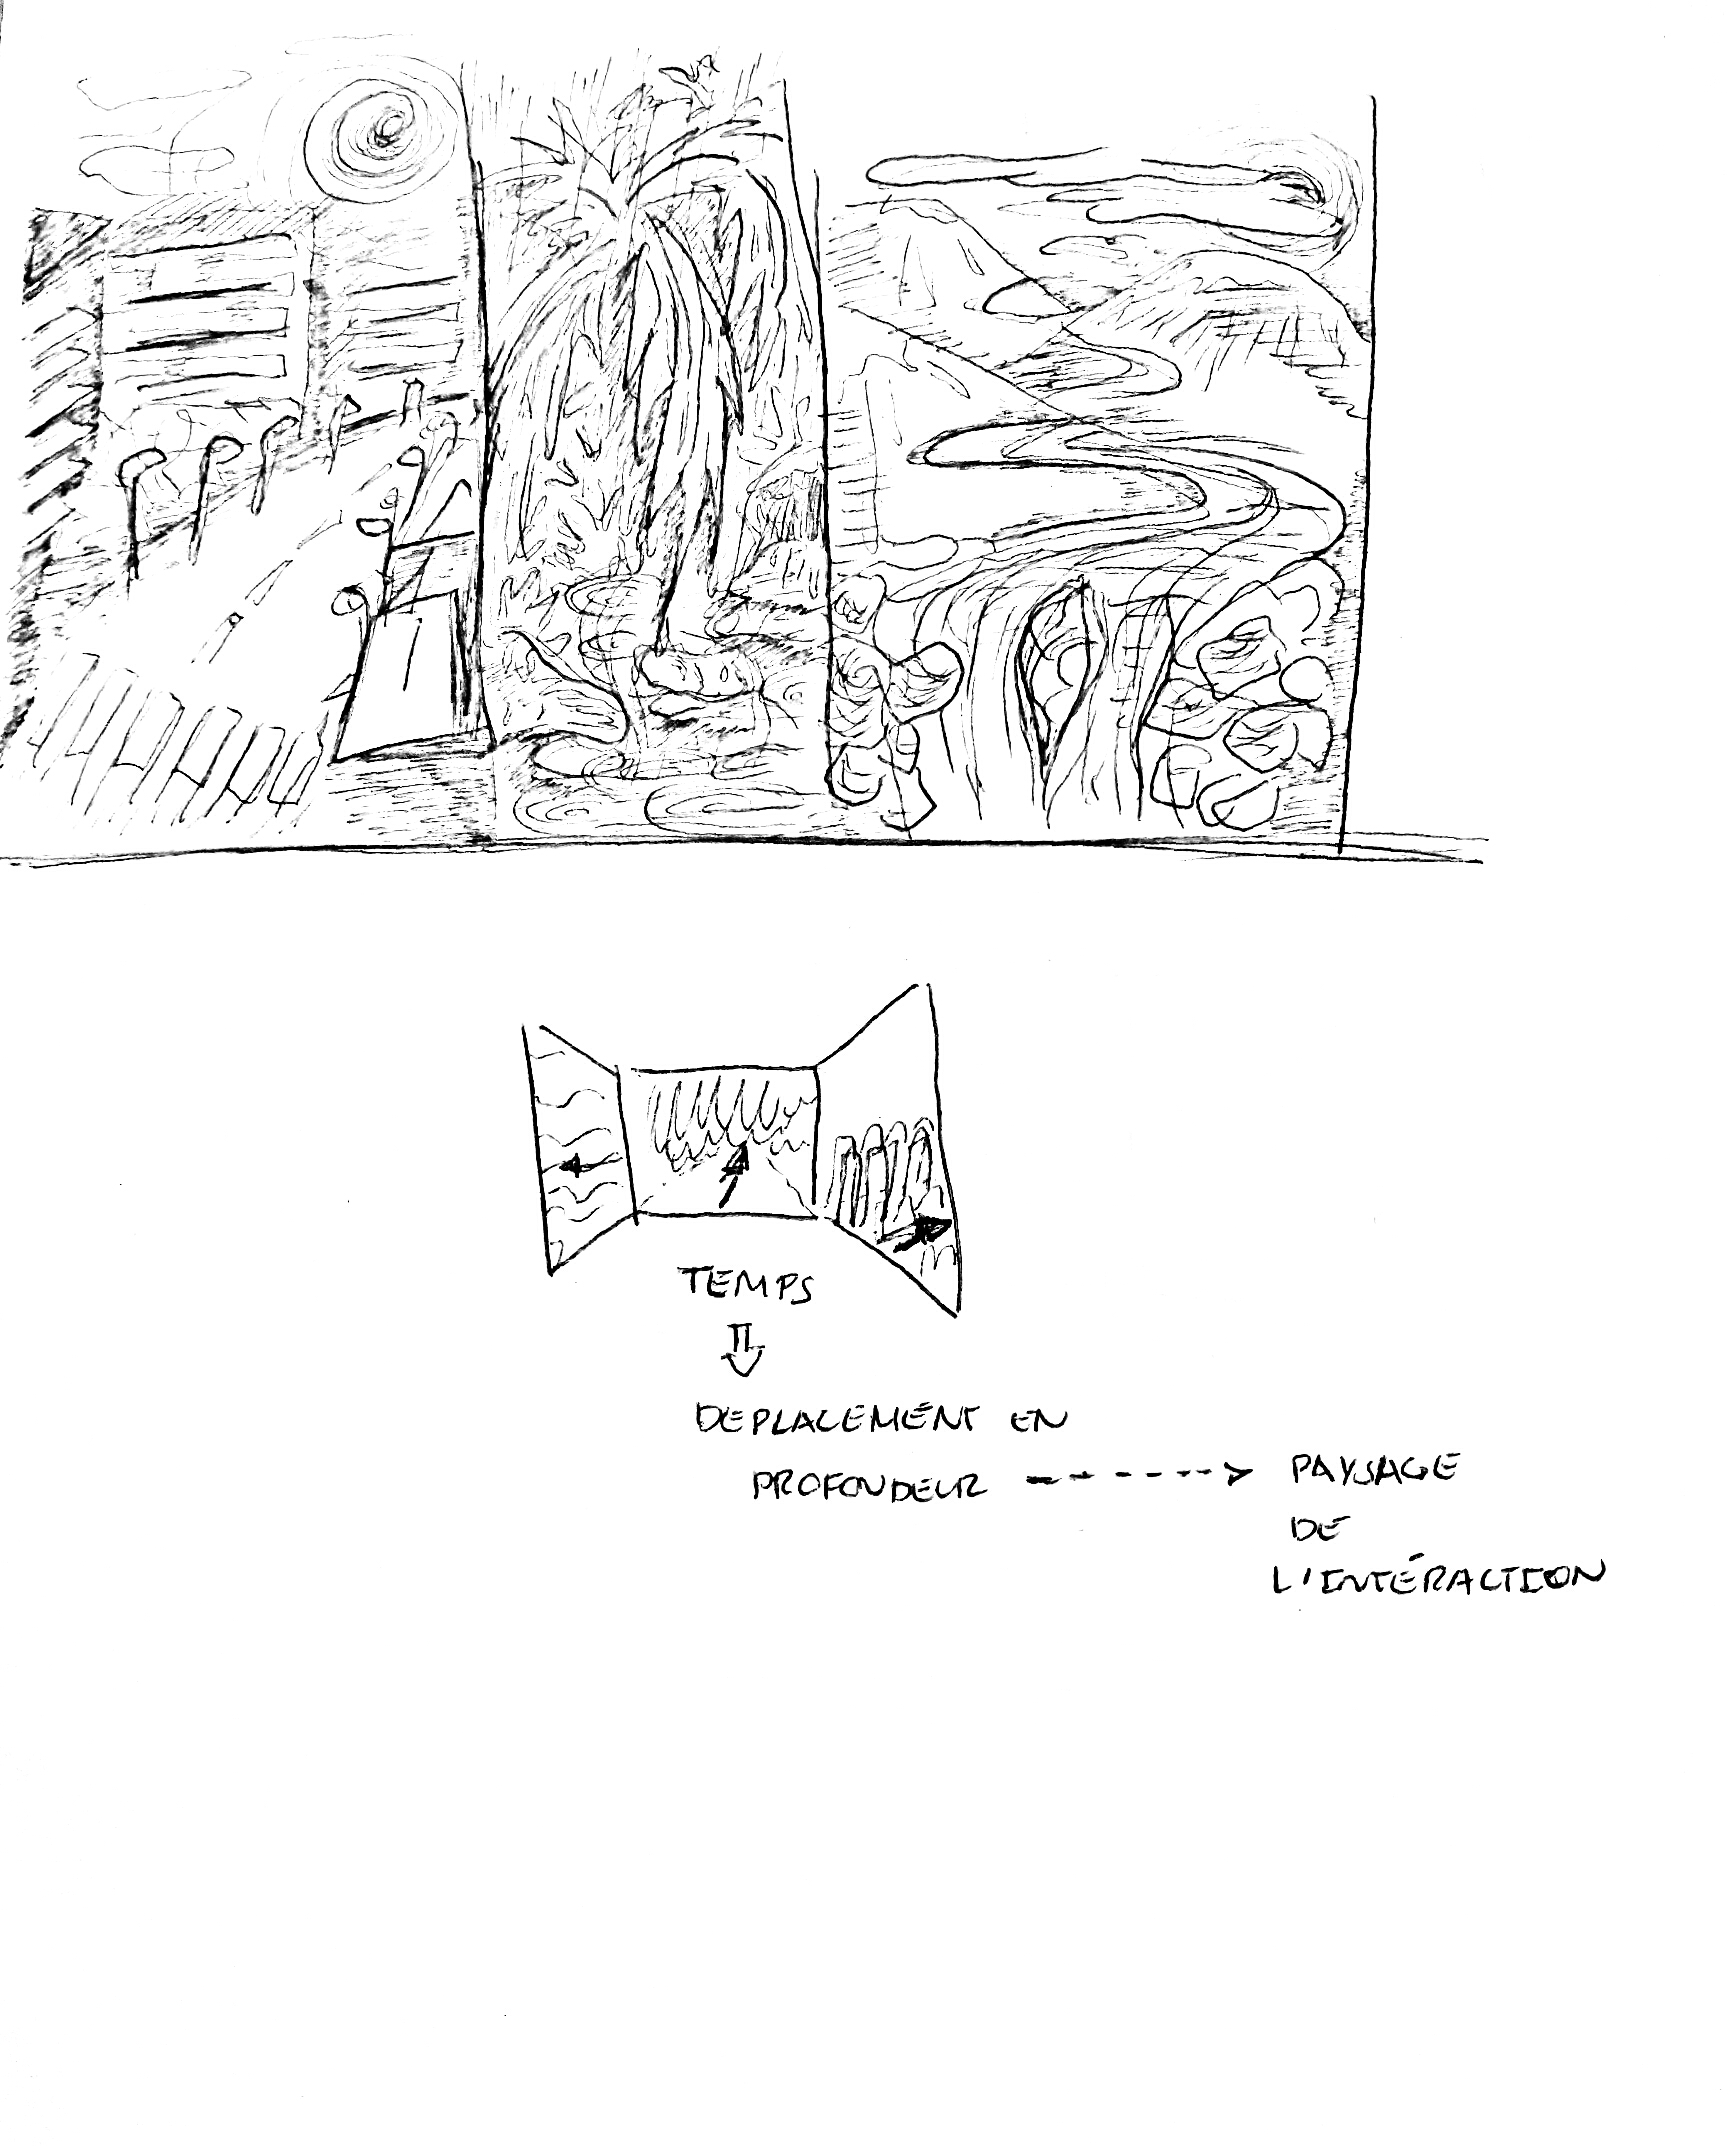 TEMPS
DEPLACEMENT EN
PROFONDEUR ----> PAYSAGE
DE
L'INTÉRACTION